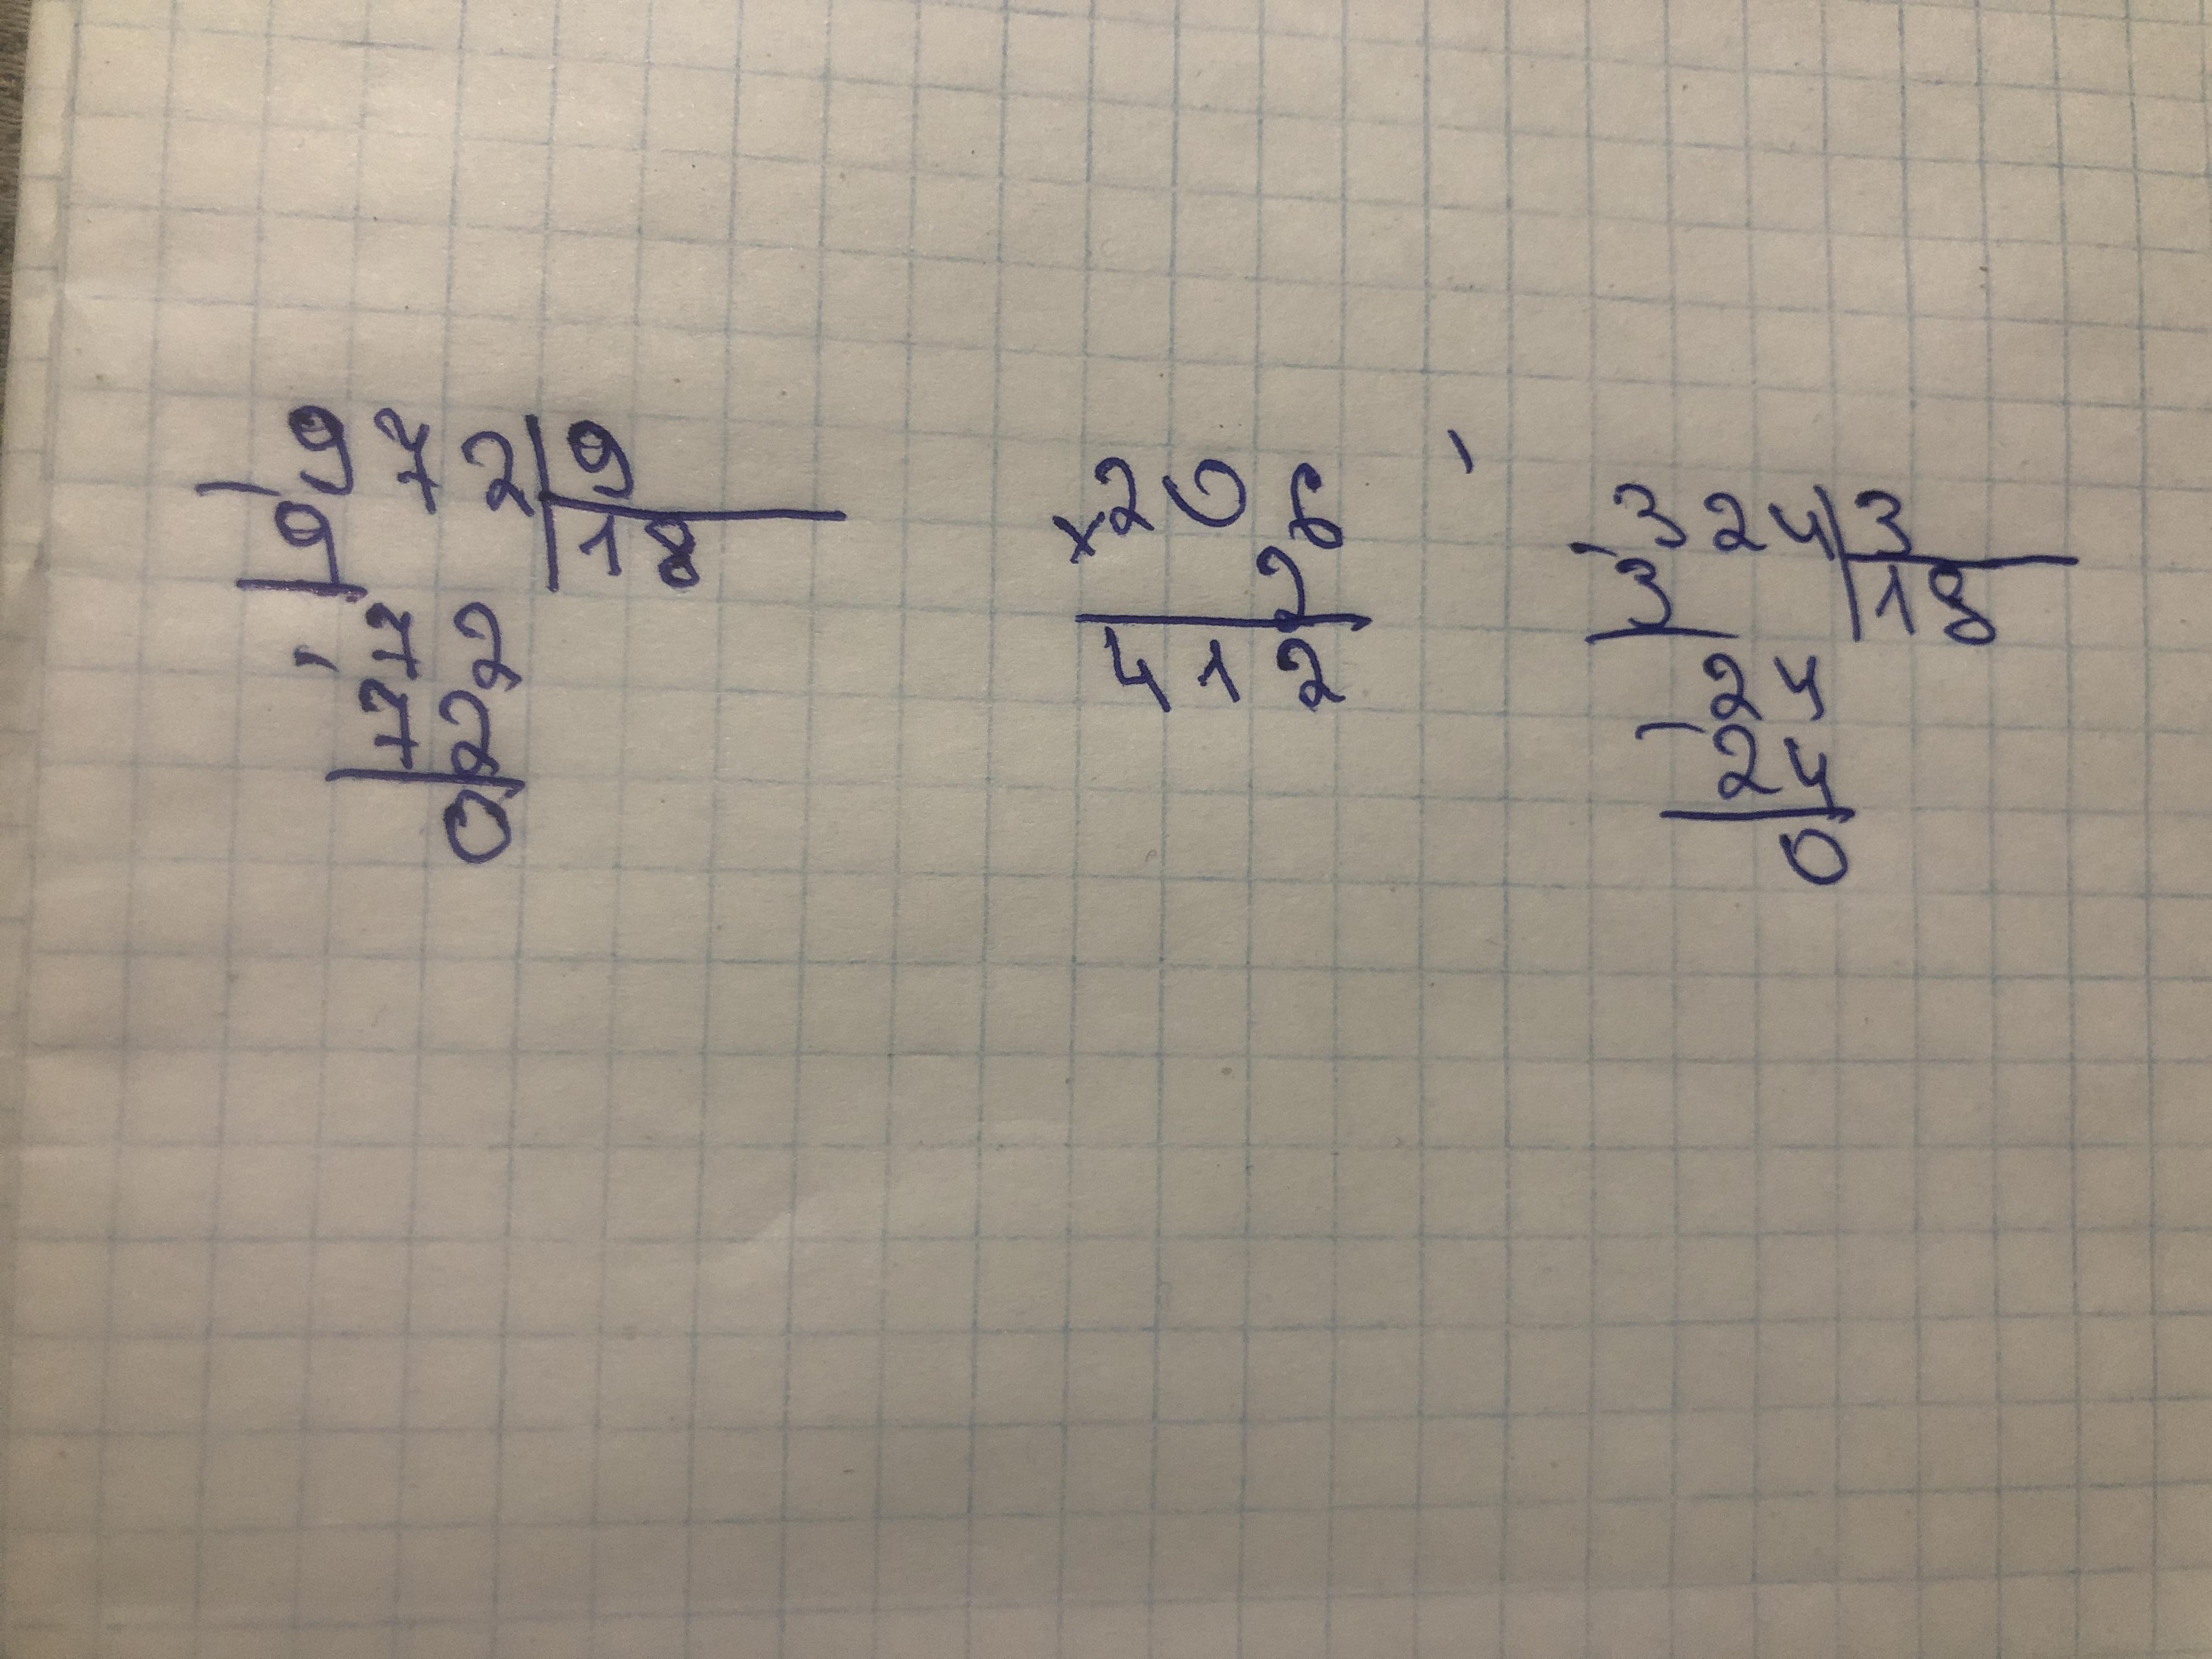 972|9
9 |18
72
72
0
×206
2
412
324|3
3 |18
24
24
0